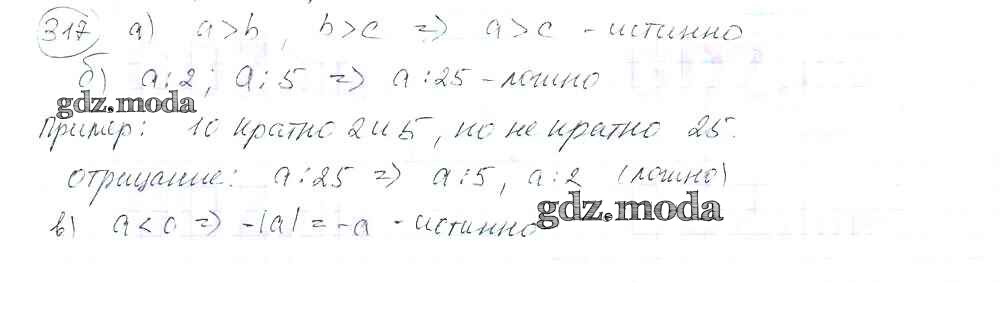 317 а) a>b, b>c => a>c - истинно
б) a:2; a:5 => a:25 - ложно
gdz.moda
Пример: 10 кратно 2 и 5, но не кратно 25.
отрицание: a:25 => a:5, a:2 (ложно)
gdz.moda
в) a<0 => -|a|=-a - истинно